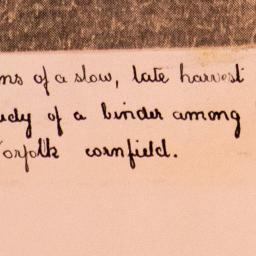 ns of a slow, late harvest
udy of a binder among
orfolk cornfield.